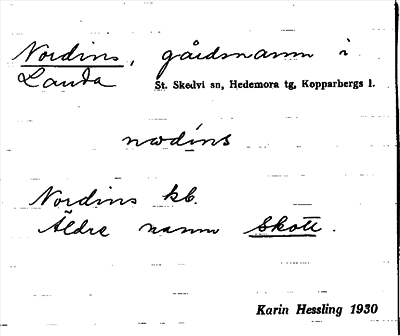 Nordins, gårdsnamn i
Landa St. Skedvi sn, Hedemora tg, Kopparbergs l.
nωdíns
Nordins kb.
Äldre namn Skott.
Karin Hessling 1930